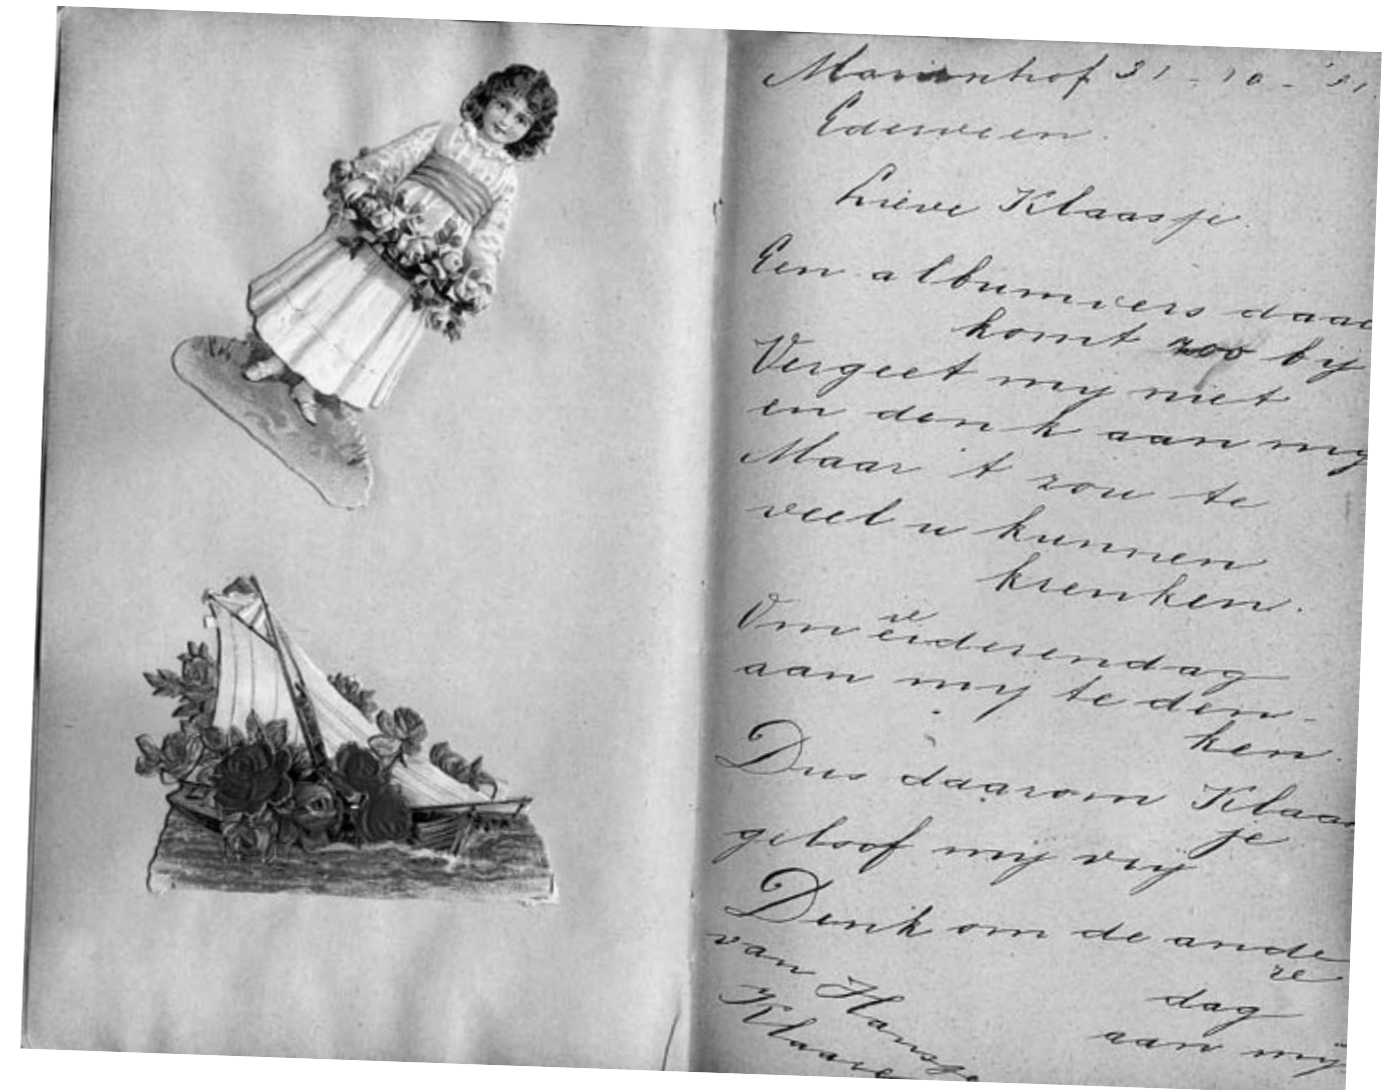 Marianhof 31 - 10 - '21.
Ederveen.
Lieve Klaasje.
Een albumvers daar
komt zoo bij
Vergeet mij niet
en denk aan mij
Maar 't zou te
veel u kunnen
krenken.
ie
Om eiderendag
aan mij te den-
ken.
Dus daarom Klaas
je
geloof mij vrij
Denk om de ande
re
dag
aan mij
van Hansje
Klaare